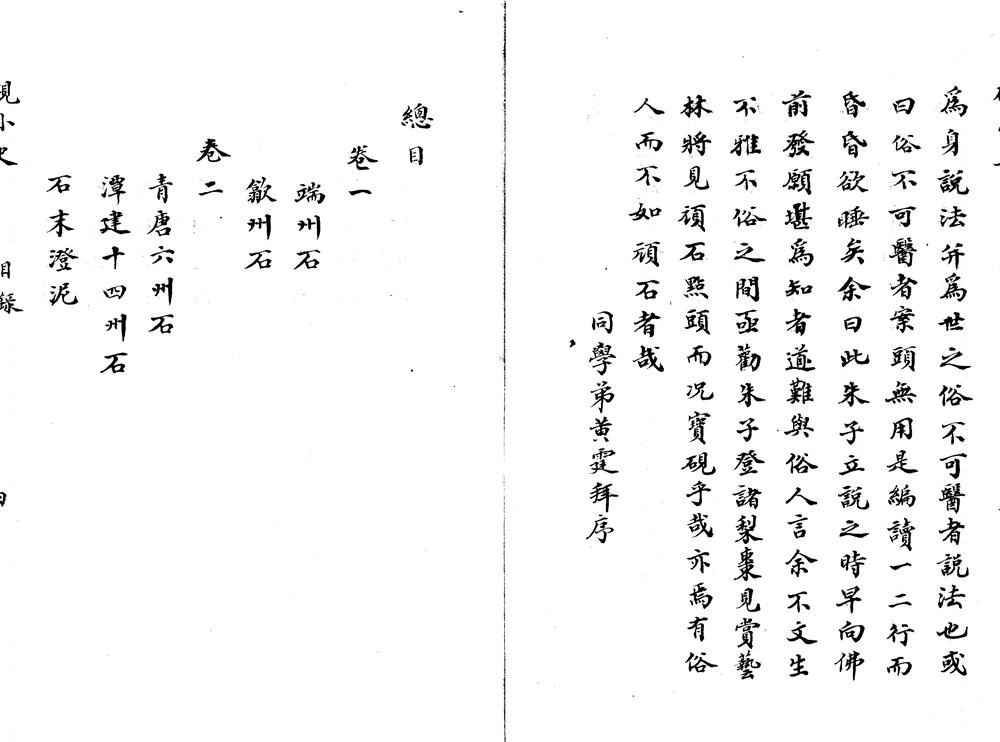 爲身説法并爲世之俗不可醫者説法也或
曰俗不可醫者案頭無用是編讀一二行而
昏昏欲睡矣余曰此朱子立説之時早向佛
前發願堪爲知者道難與俗人言余不文生
不雅不俗之間亟勸朱子登諸梨棗見賞藝
林將見頑石點頭而况寶硯乎哉亦焉有俗
人而不如頑石者哉
同學弟黄霆拜序
總目
卷一
端州石
歙州石
卷二
青唐六州石
潭建十四州石
石末澄泥
硯小史
目録